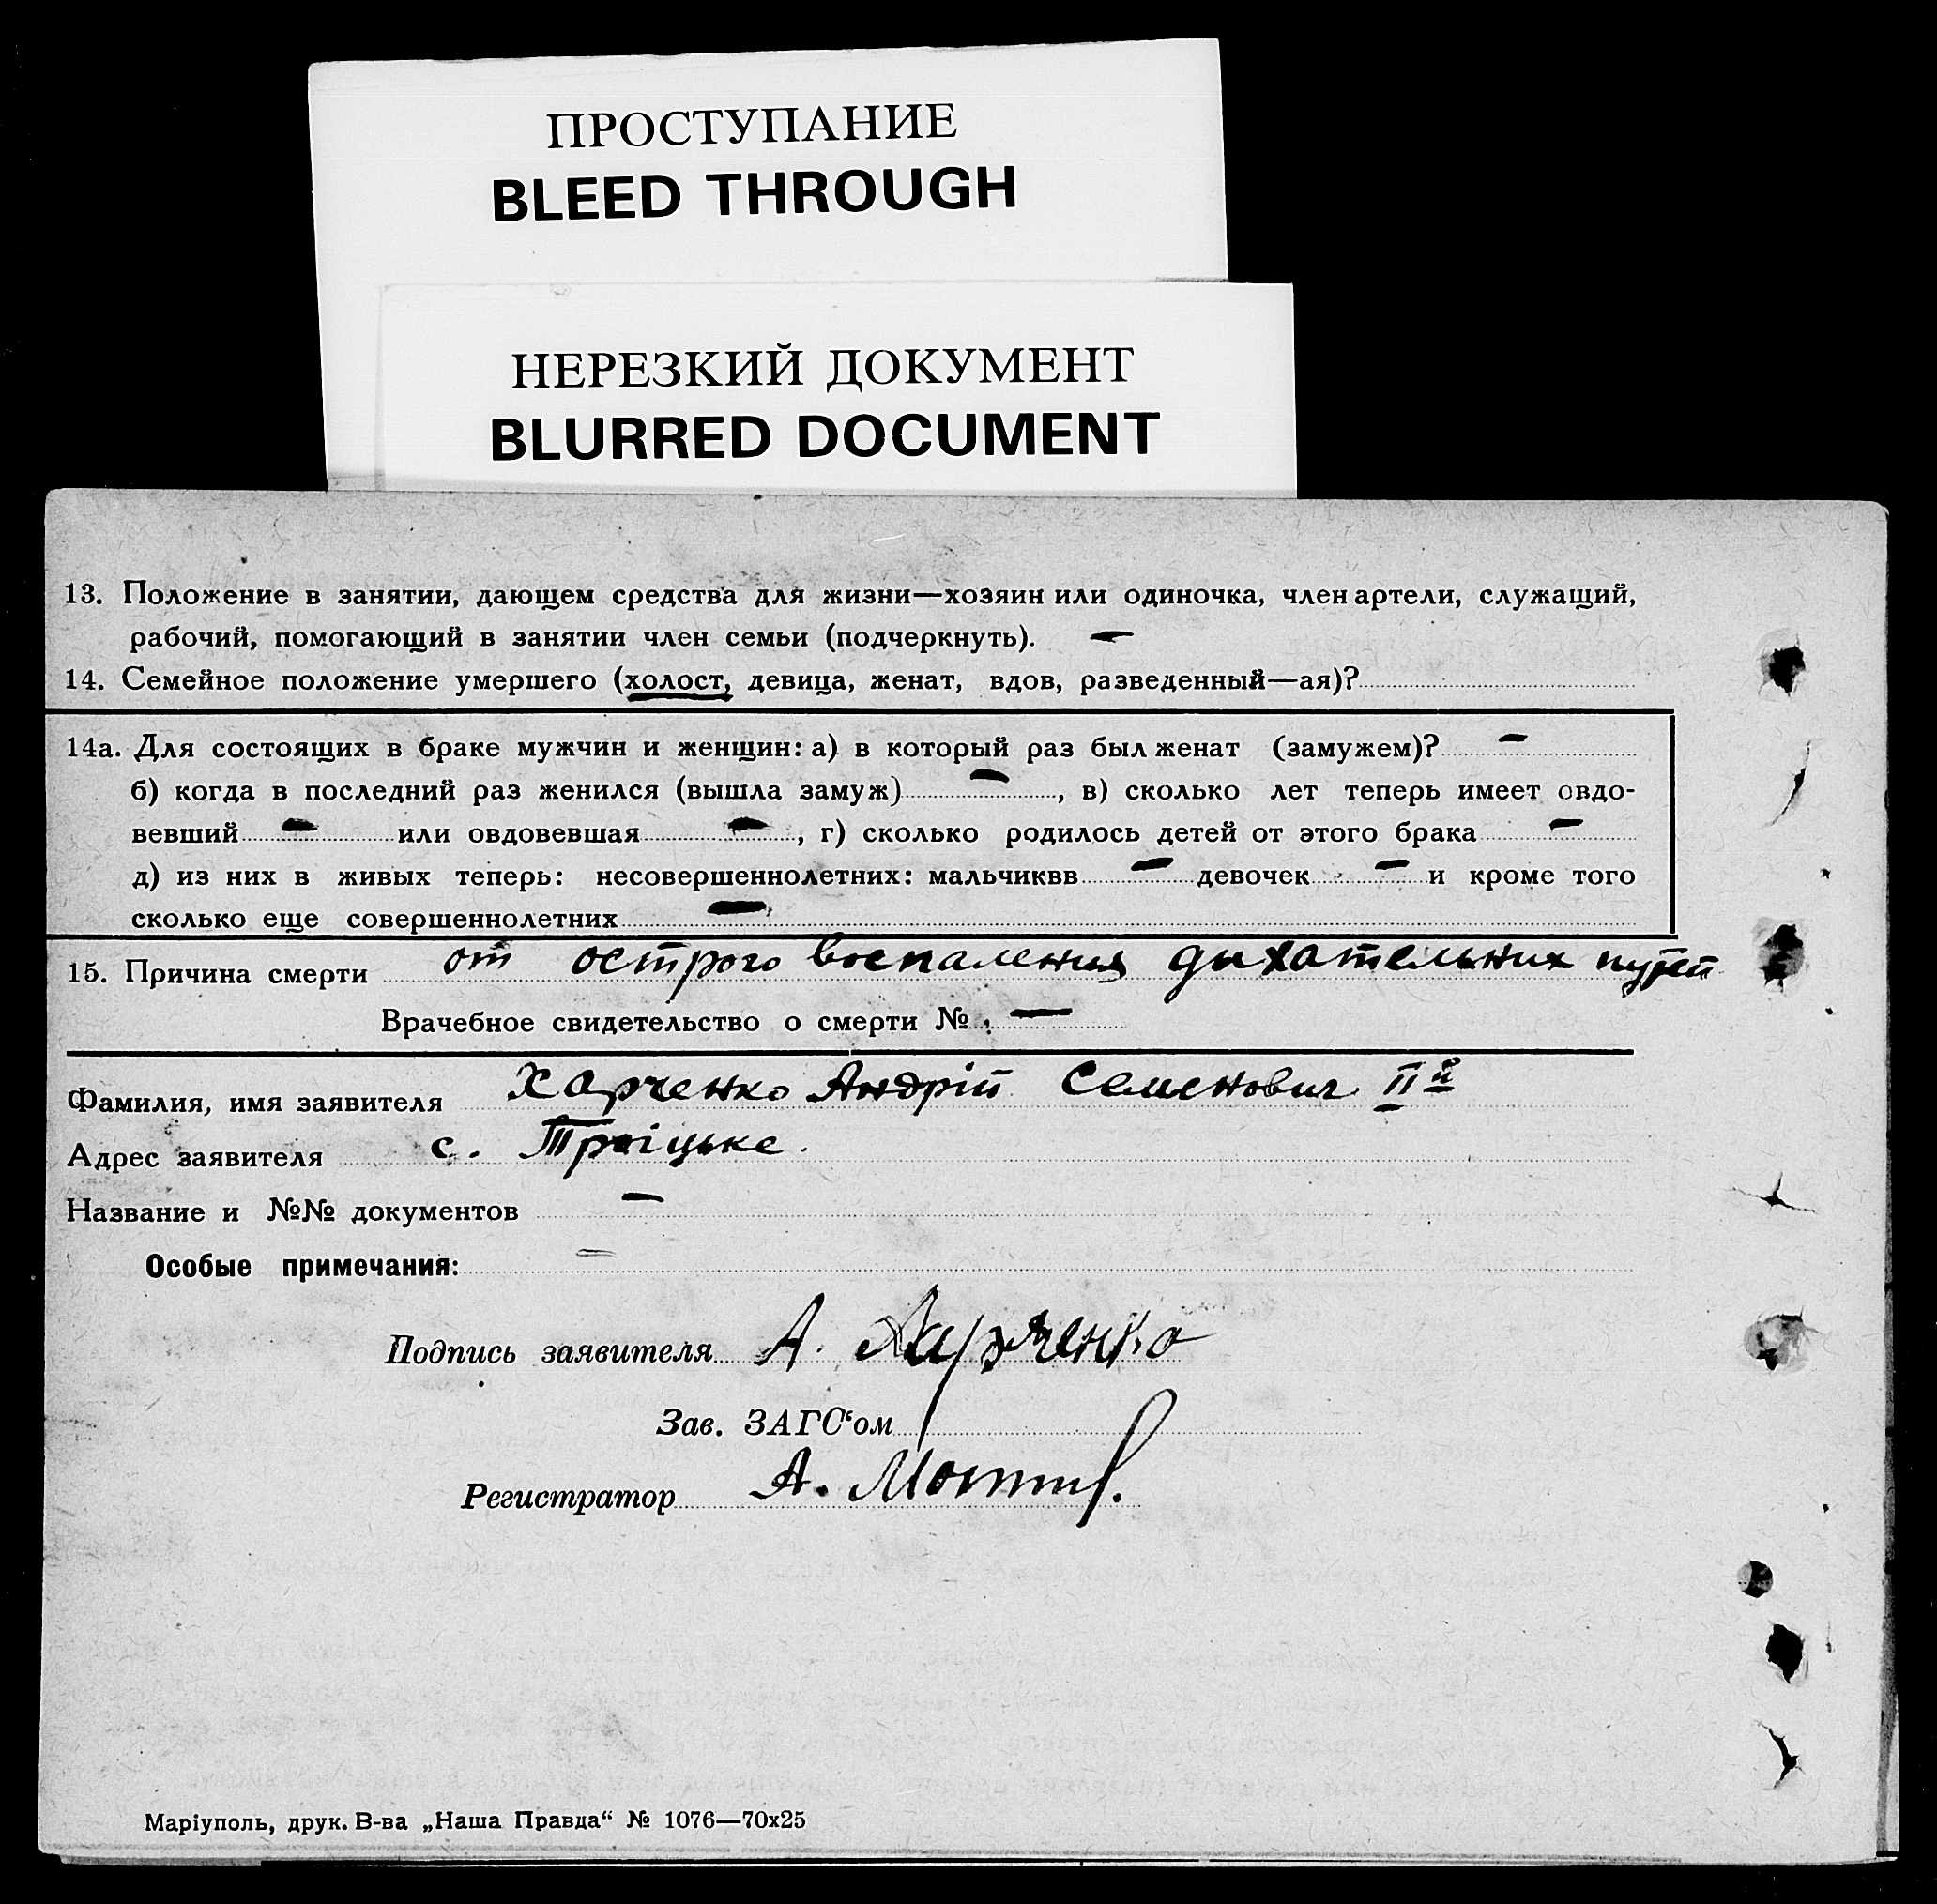 ПРОСТУПАНИЕ
BLEED THROUGH
НЕРЕЗКИЙ ДОКУМЕНТ
BLURRED DOCUMENT
13. Положение в занятии, дающем средства для жизни—хозяин или одиночка, член артели, служащий,
рабочий, помогающий в занятии член семьи (подчеркнуть). —
14. Семейное положение умершего (холост, девица, женат, вдов, разведенный—ая)?
14а. Для состоящих в браке мужчин и женщин: а) в который раз был женат (замужем)? —
б) когда в последний раз женился (вышла замуж) — , в) сколько лет теперь имеет овдо-
вевший — или овдовевшая — , г) сколько родилось детей от этого брака —
д) из них в живых теперь: несовершеннолетних: мальчиквв — девочек — и кроме того
сколько еще совершеннолетних —
15. Причина смерти от острого воспаления дыхательних путей
Врачебное свидетельство о смерти № —
Фамилия, имя заявителя Харченко Андрій Семенович ІІй
Адрес заявителя с. Троїцьке.
Название и №№ документов —
Особые примечания: —
Подпись заявителя А. Харченко
Зав. ЗАГС‘ом
Регистратор А.
Маріуполь, друк. В-ва „Наша Правда“ № 1076—70х25